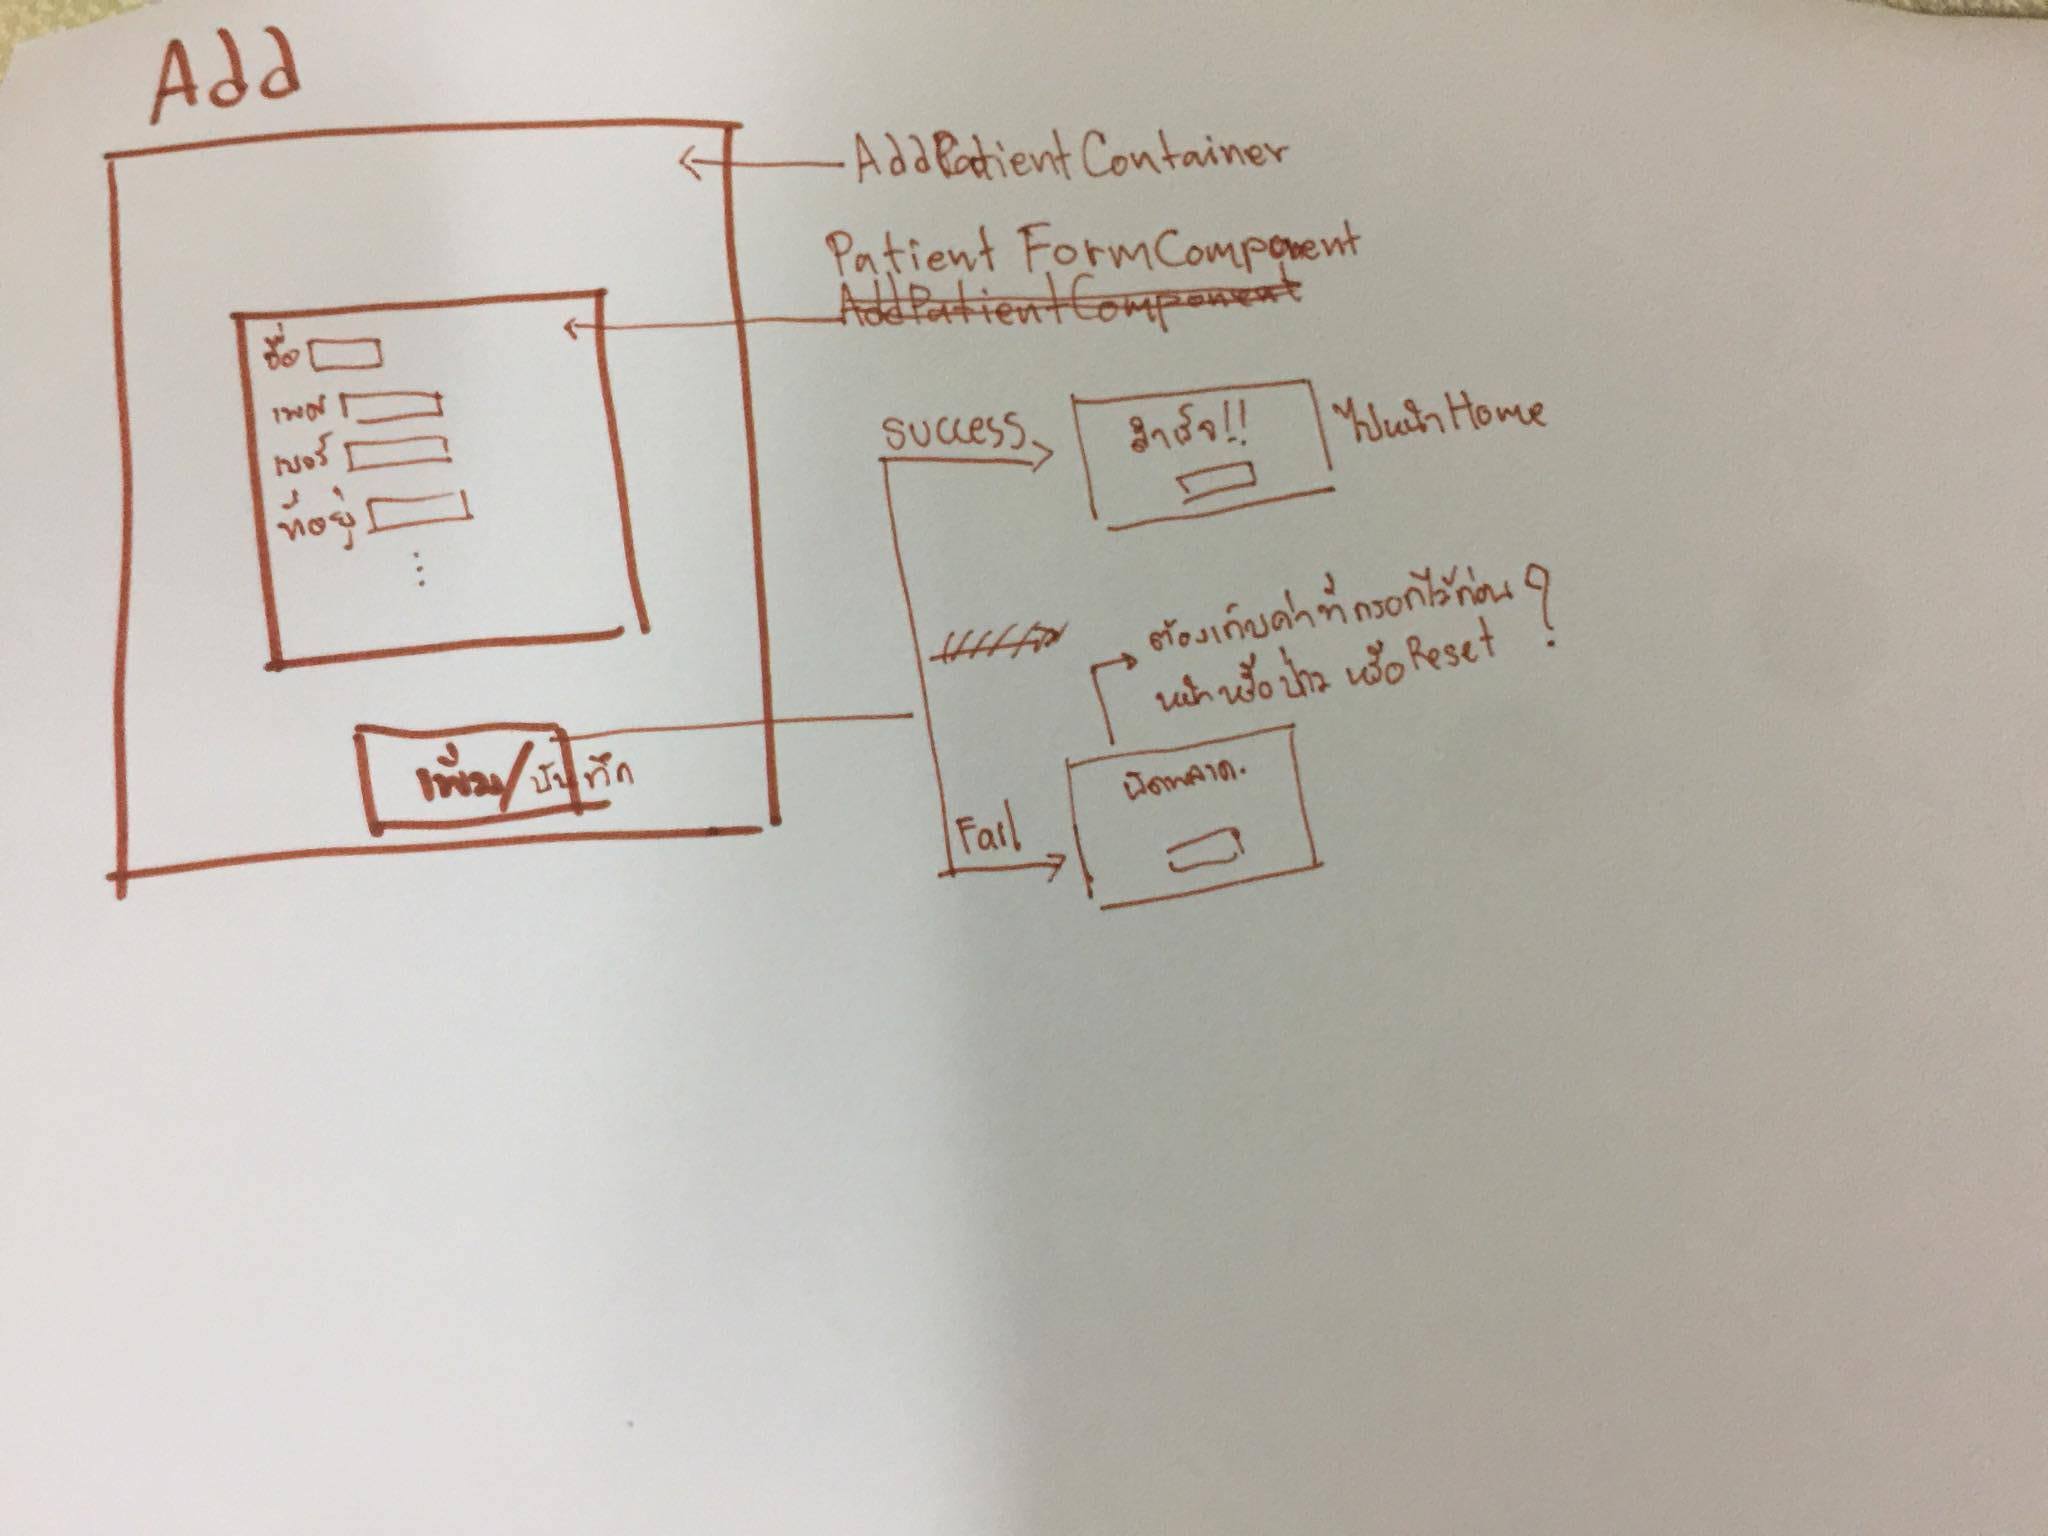 Add
AddPatientContainer
Patient FormComponent
AddPatientComponent
ชื่อ
เพศ
เบอร์
ที่อยู่
เพิ่ม/บันทึก
success
สำเร็จ!!
ไปหน้า Home
ต้องเก็บค่าที่กรอกไว้ก่อน
หน้าหรือป่าว หรือ Reset ?
Fail
ผิดพลาด.